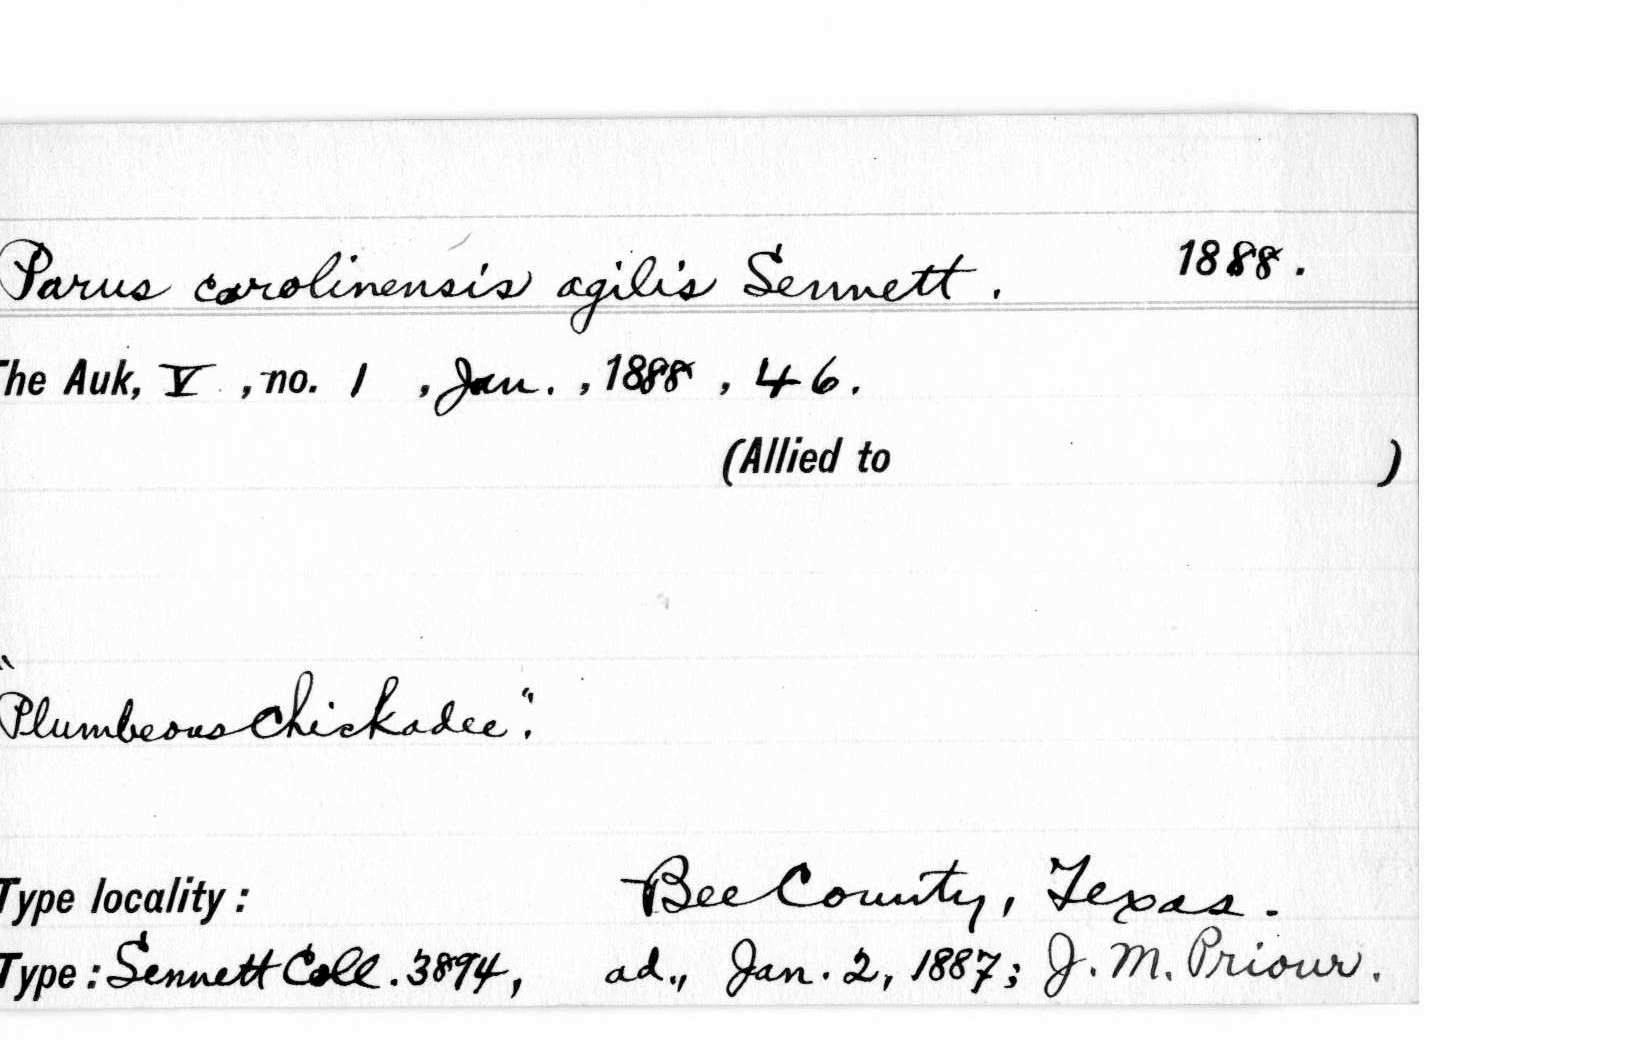 Parus carolinensis agilis Sennett. 1888.
The Auk, V, no. 1, Jan., 1888, 46.
(Allied to )
"Plumbeous Chickadee".
Type locality: Bee County, Texas.
Type: Sennett Coll. 3894, ad., Jan. 2, 1887; J. M. Priour.